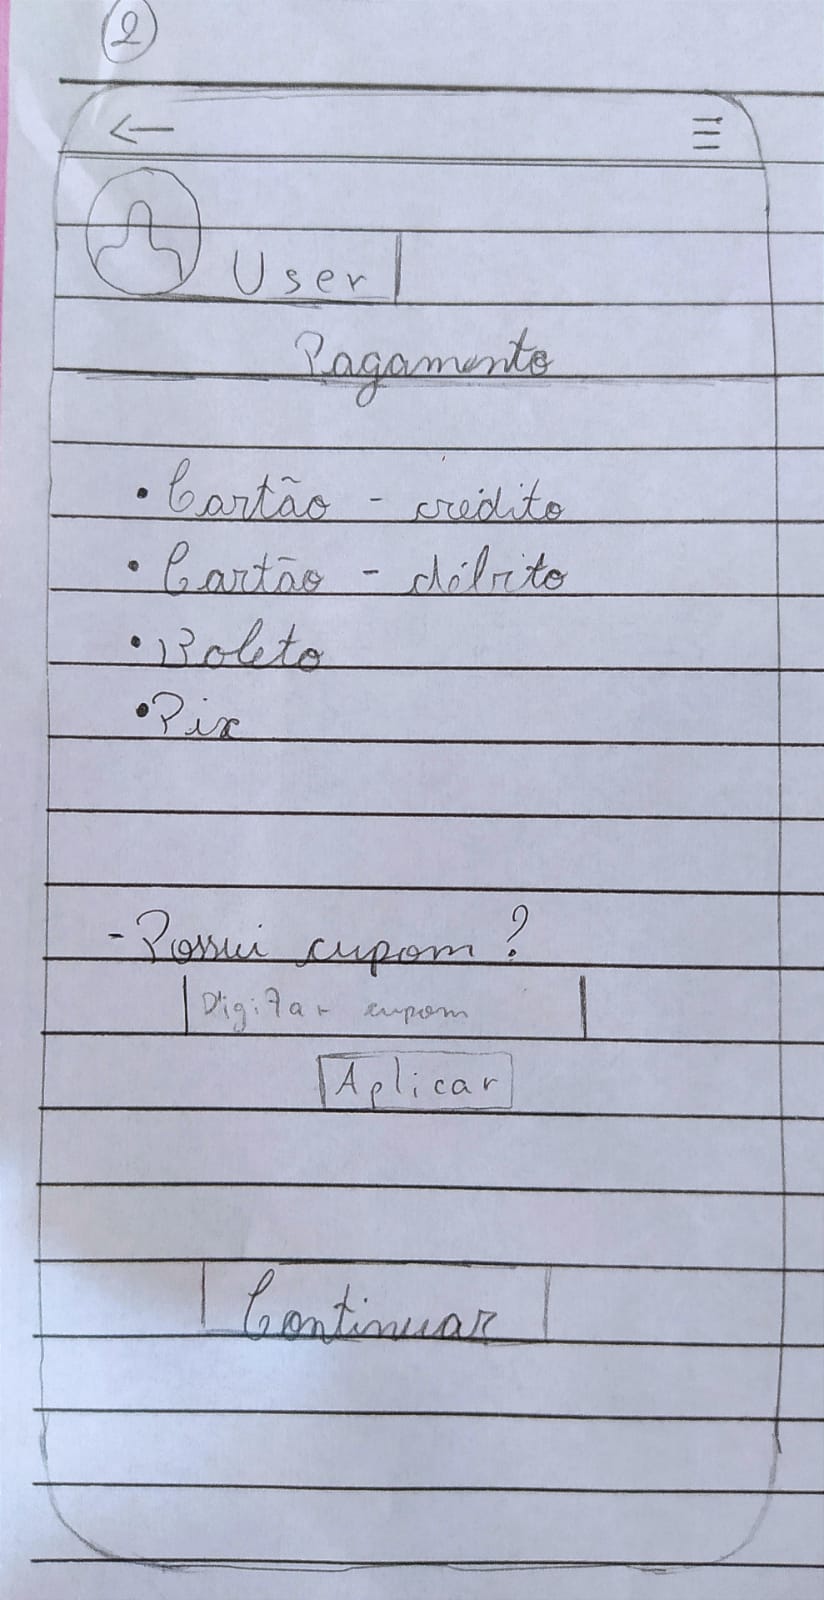 2
User
Pagamento
• Cartão - crédito
• Cartão - débito
• Boleto
• Pix
- Possui cupom?
Digitar cupom
Aplicar
Continuar